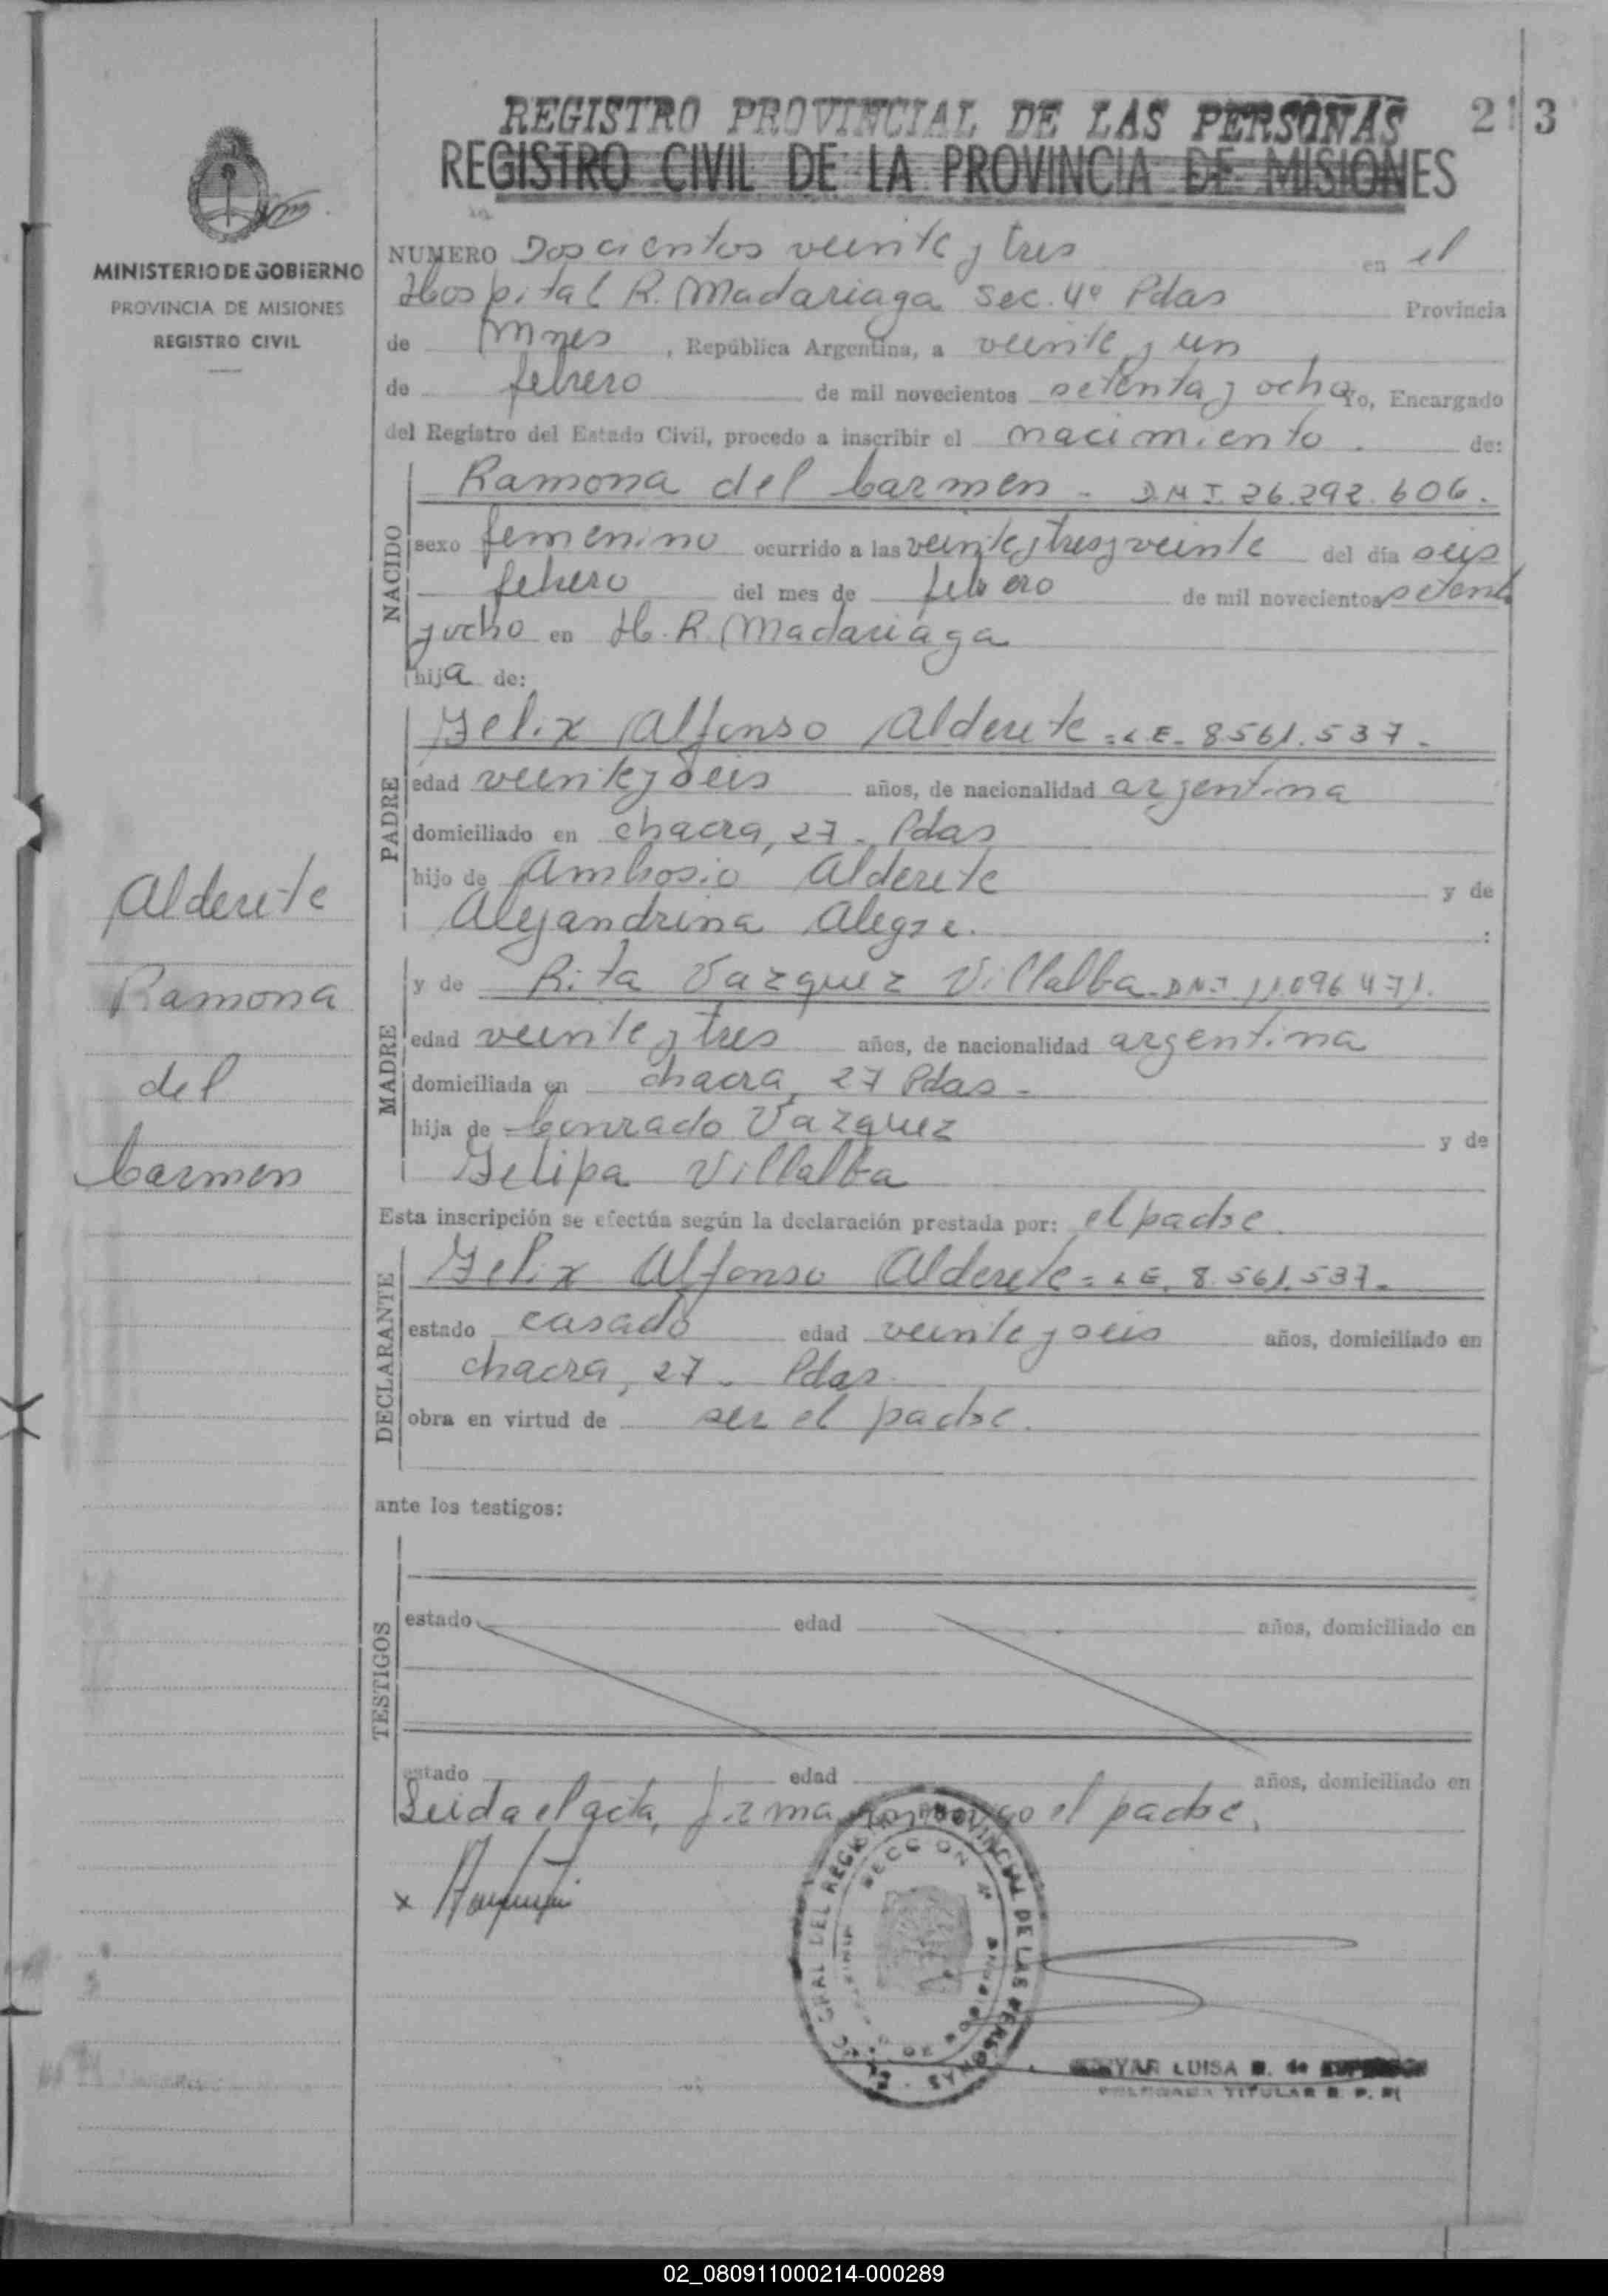 REGISTRO PROVINCIAL DE LAS PERSONAS
213
REGISTRO CIVIL DE LA PROVINCIA DE MISIONES
MINISTERIO DE GOBIERNO
PROVINCIA DE MISIONES
REGISTRO CIVIL
NUMERO Doscientos veinte y tres en el
Hospital R. Madariaga Sec. 4º Pdas Provincia
de Mnes, República Argentina, a veinte y un
de febrero de mil novecientos setenta y ocho Yo, Encargado
del Registro del Estado Civil, procedo a inscribir el nacimiento de:
NACIDO
Ramona del Carmen - D.N.I. 26.292.606.
sexo femenino ocurrido a las veinte y tres y veinte del día seis
febrero del mes de febrero de mil novecientos setenta
y ocho en H. R. Madariaga
hija de:
PADRE
Felix Alfonso Alderete = L.E. 8561.537.
edad veinte y seis años, de nacionalidad argentina
domiciliado en chacra, 27 - Pdas
hijo de Ambrosio Alderete y de
Alejandrina Alegre. :
MADRE
y de Rita Vazquez Villalba. D.N.I. 11.096 471.
edad veinte y tres años, de nacionalidad argentina
domiciliada en chacra, 27 Pdas -
hija de Conrado Vazquez y de
Felipa Villalba
Alderete
Ramona
del
Carmen
Esta inscripción se efectúa según la declaración prestada por: el padre.
DECLARANTE
Felix Alfonso Alderete = L.E. 8.561.537.
estado casado edad veinte y seis años, domiciliado en
chacra, 27 - Pdas.
obra en virtud de ser el padre.
ante los testigos:
TESTIGOS
estado edad años, domiciliado en
estado edad años, domiciliado en
Leida el acta, firma conmigo el padre.
x
GRAL DEL REGISTRO PROVINCIAL DE LAS PERSONAS
LUISA B. de
TITULAR R. P. P.
02_080911000214-000289